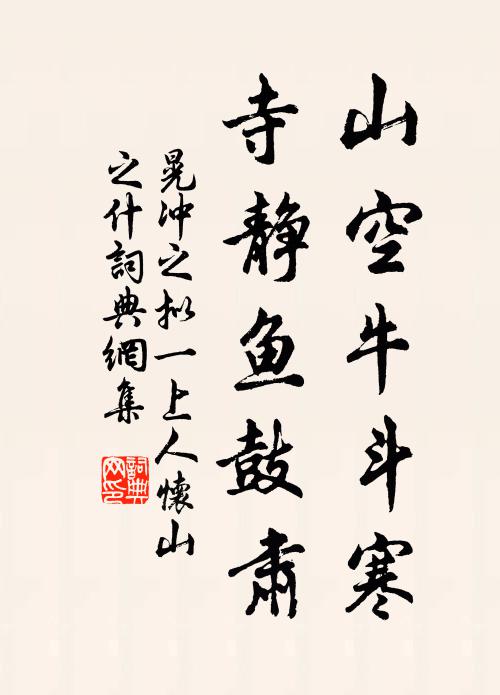 山空牛斗寒
寺静鱼鼓肃
晃冲之拟一上人懷山
之什詞典網集
詞典網印